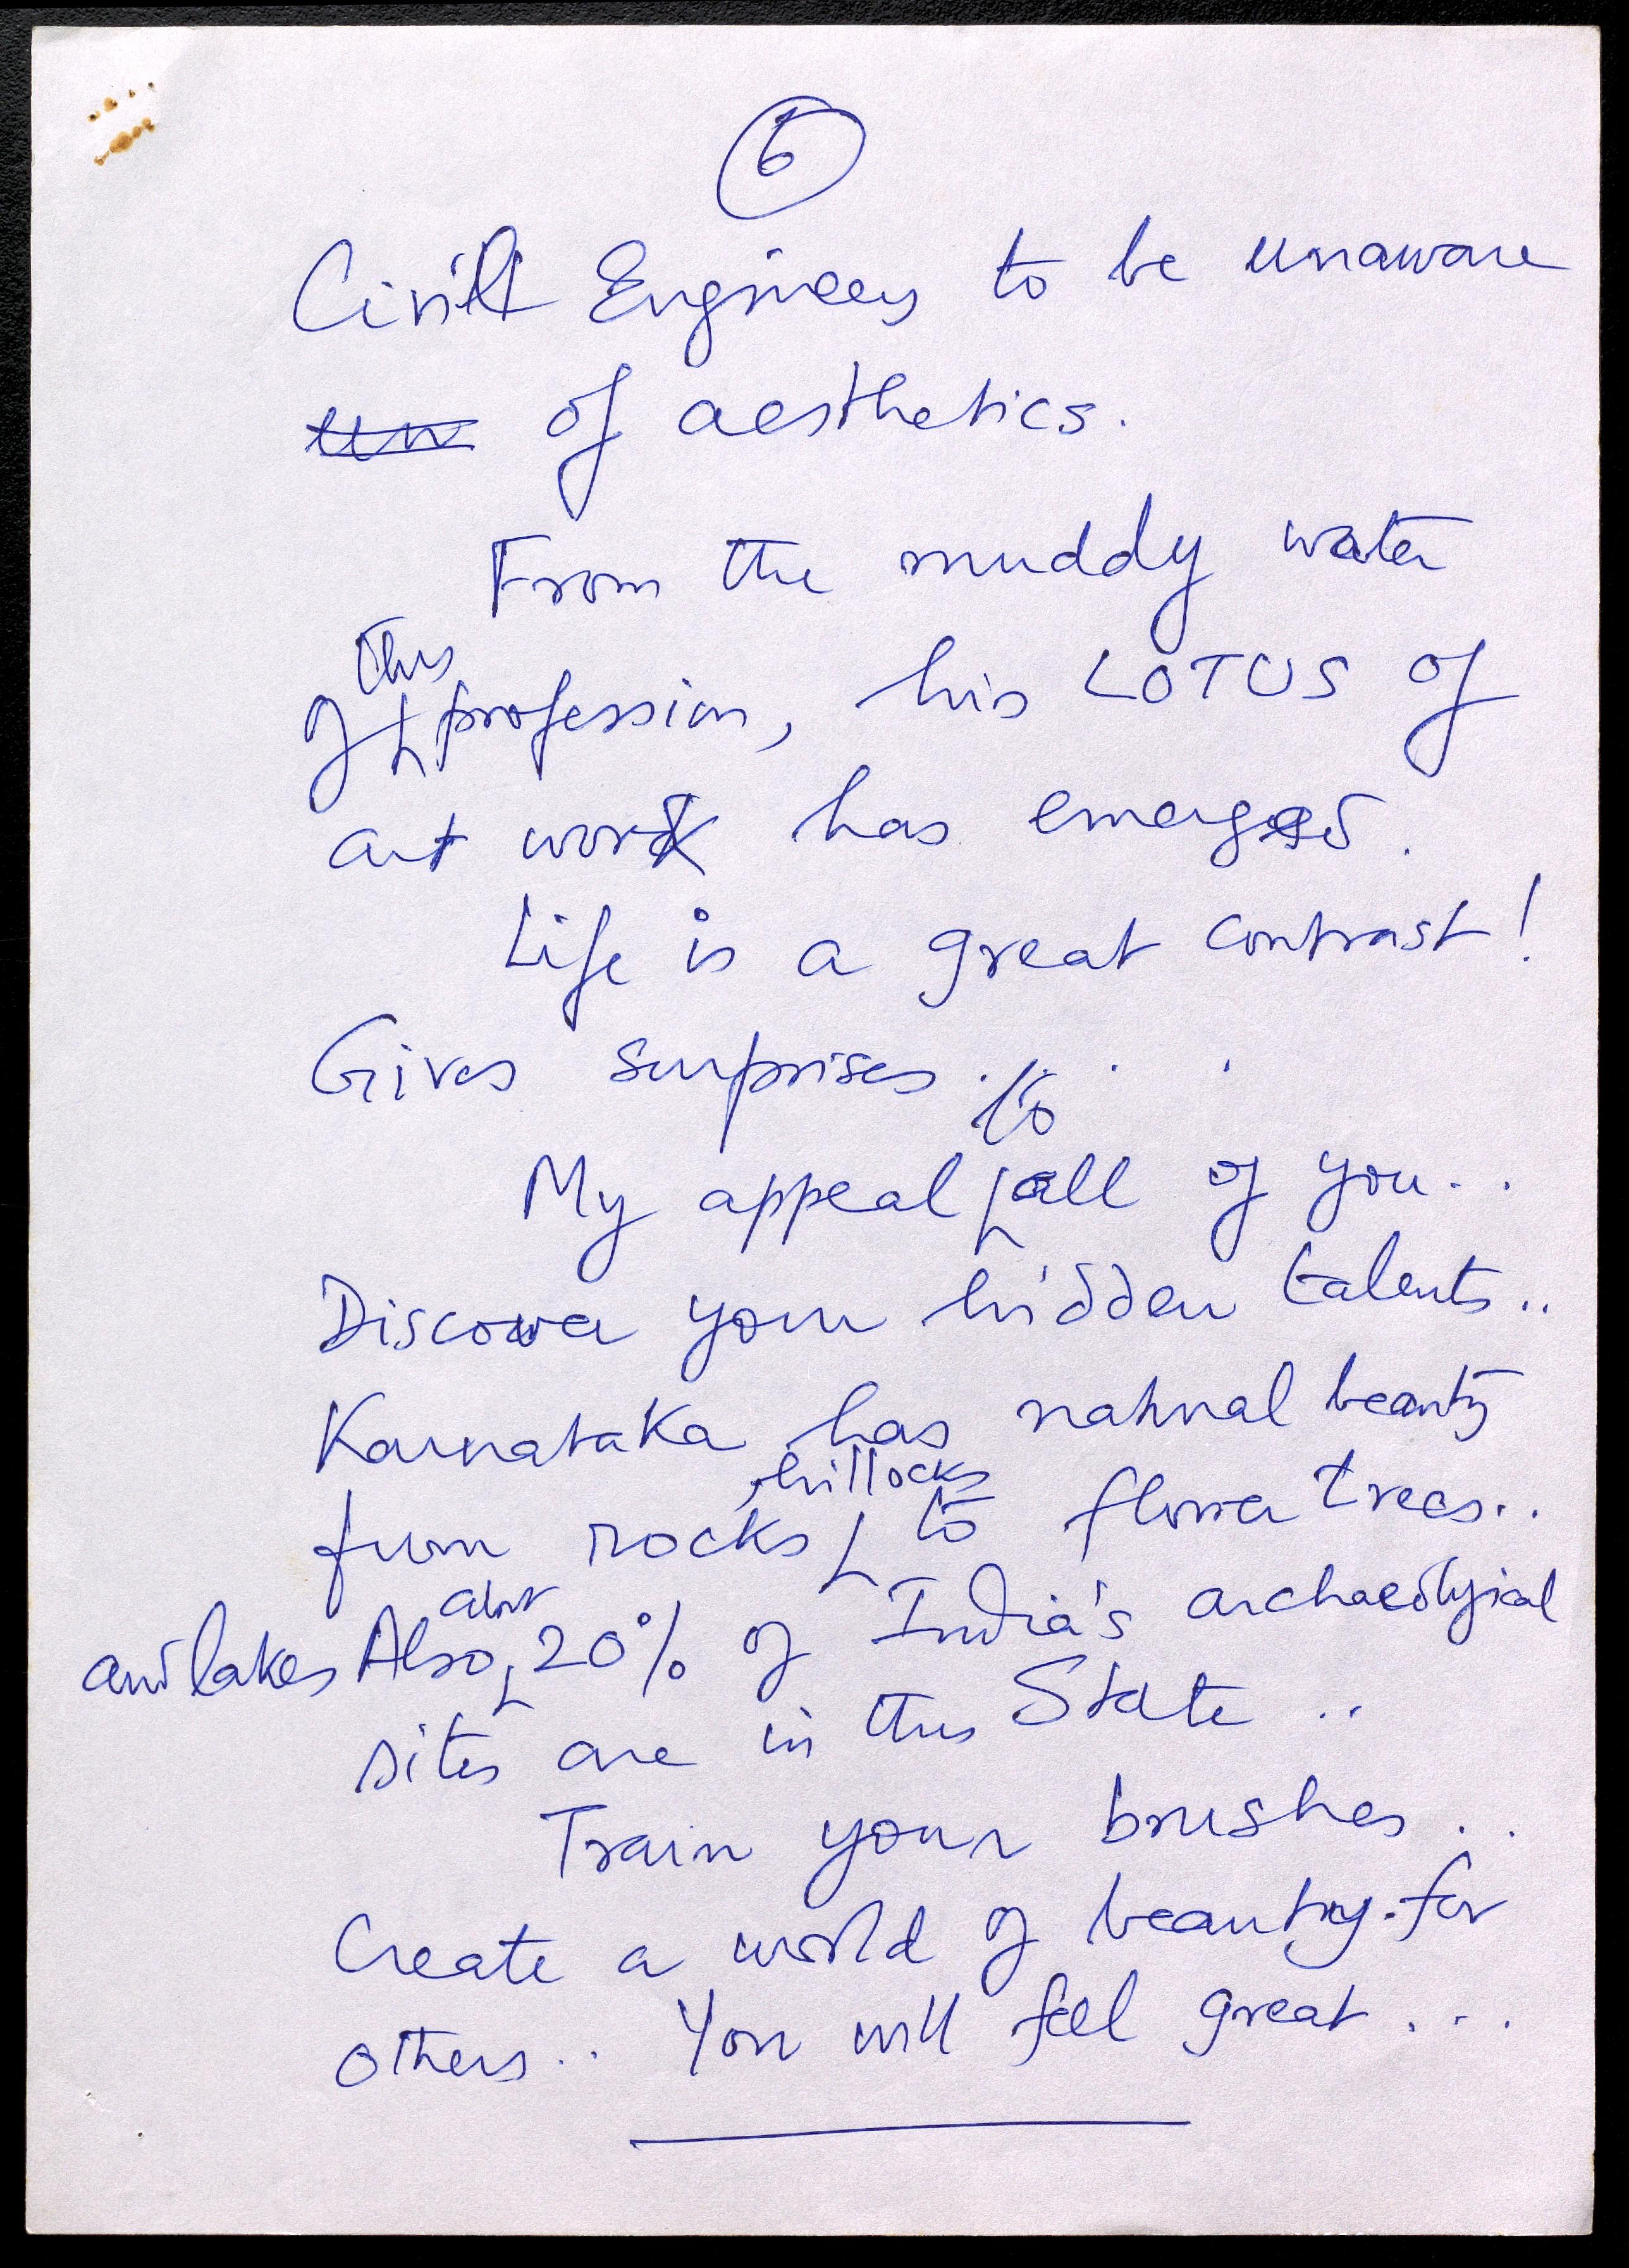 6
Civil Engineers to be unaware
un of aesthetics.
From the muddy water
of this profession, his LOTUS of
art work has emerged.
Life is a great contrast!
Gives surprises . . . .
My appeal to all of you..
Discover your hidden talents..
Karnataka has natural beauty
from rocks, hillocks to flower trees..
and lakes Also, about 20% of India's archaeological
sites are in this State ..
Train your brushes ..
Create a world of beauty for
others.. You will feel great ...